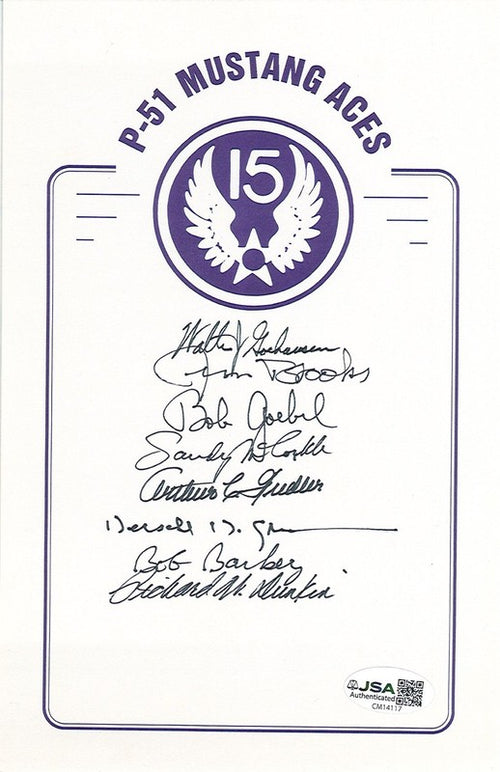 P-51 MUSTANG ACES
15
Walter J Goehausen
Jim Brooks
Bob Goebel
Sandy McCorkle
Arthur C Fiedler
Herschel
Bob Barkey
Richard W. Dunkin
JSA
Authenticated
CM14117